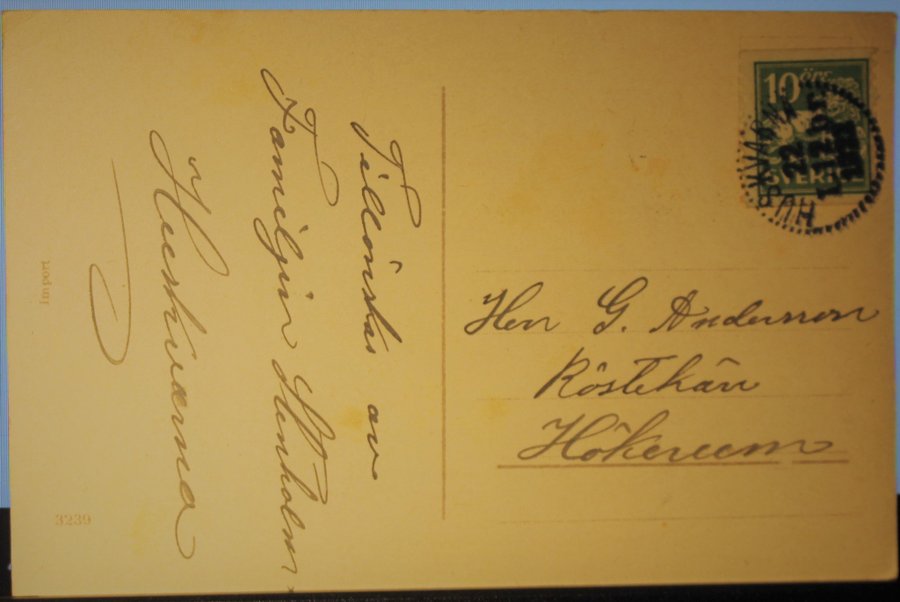 Tillönskas av
Familjen Stenholm
Huskvarna
Import
3239
10 ÖRE
SVERIGE
HUSKVARNA
22
Herr G. Andersson
Röstekärr
Hökerum